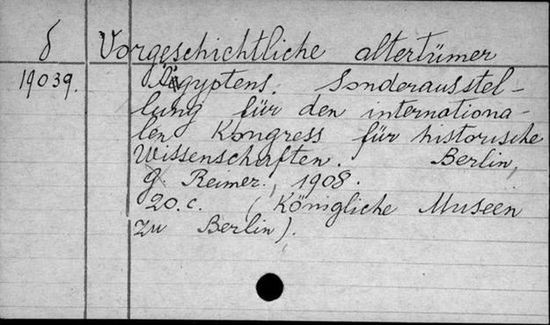 δ Vorgeschichtliche altertümer
19039. Ägyptens. Sonderausstel-
lung für den internationa-
len Kongress für historische
Wissenschaften. Berlin,
G. Reimer, 1908.
20.c. (Königliche Museen
zu Berlin).